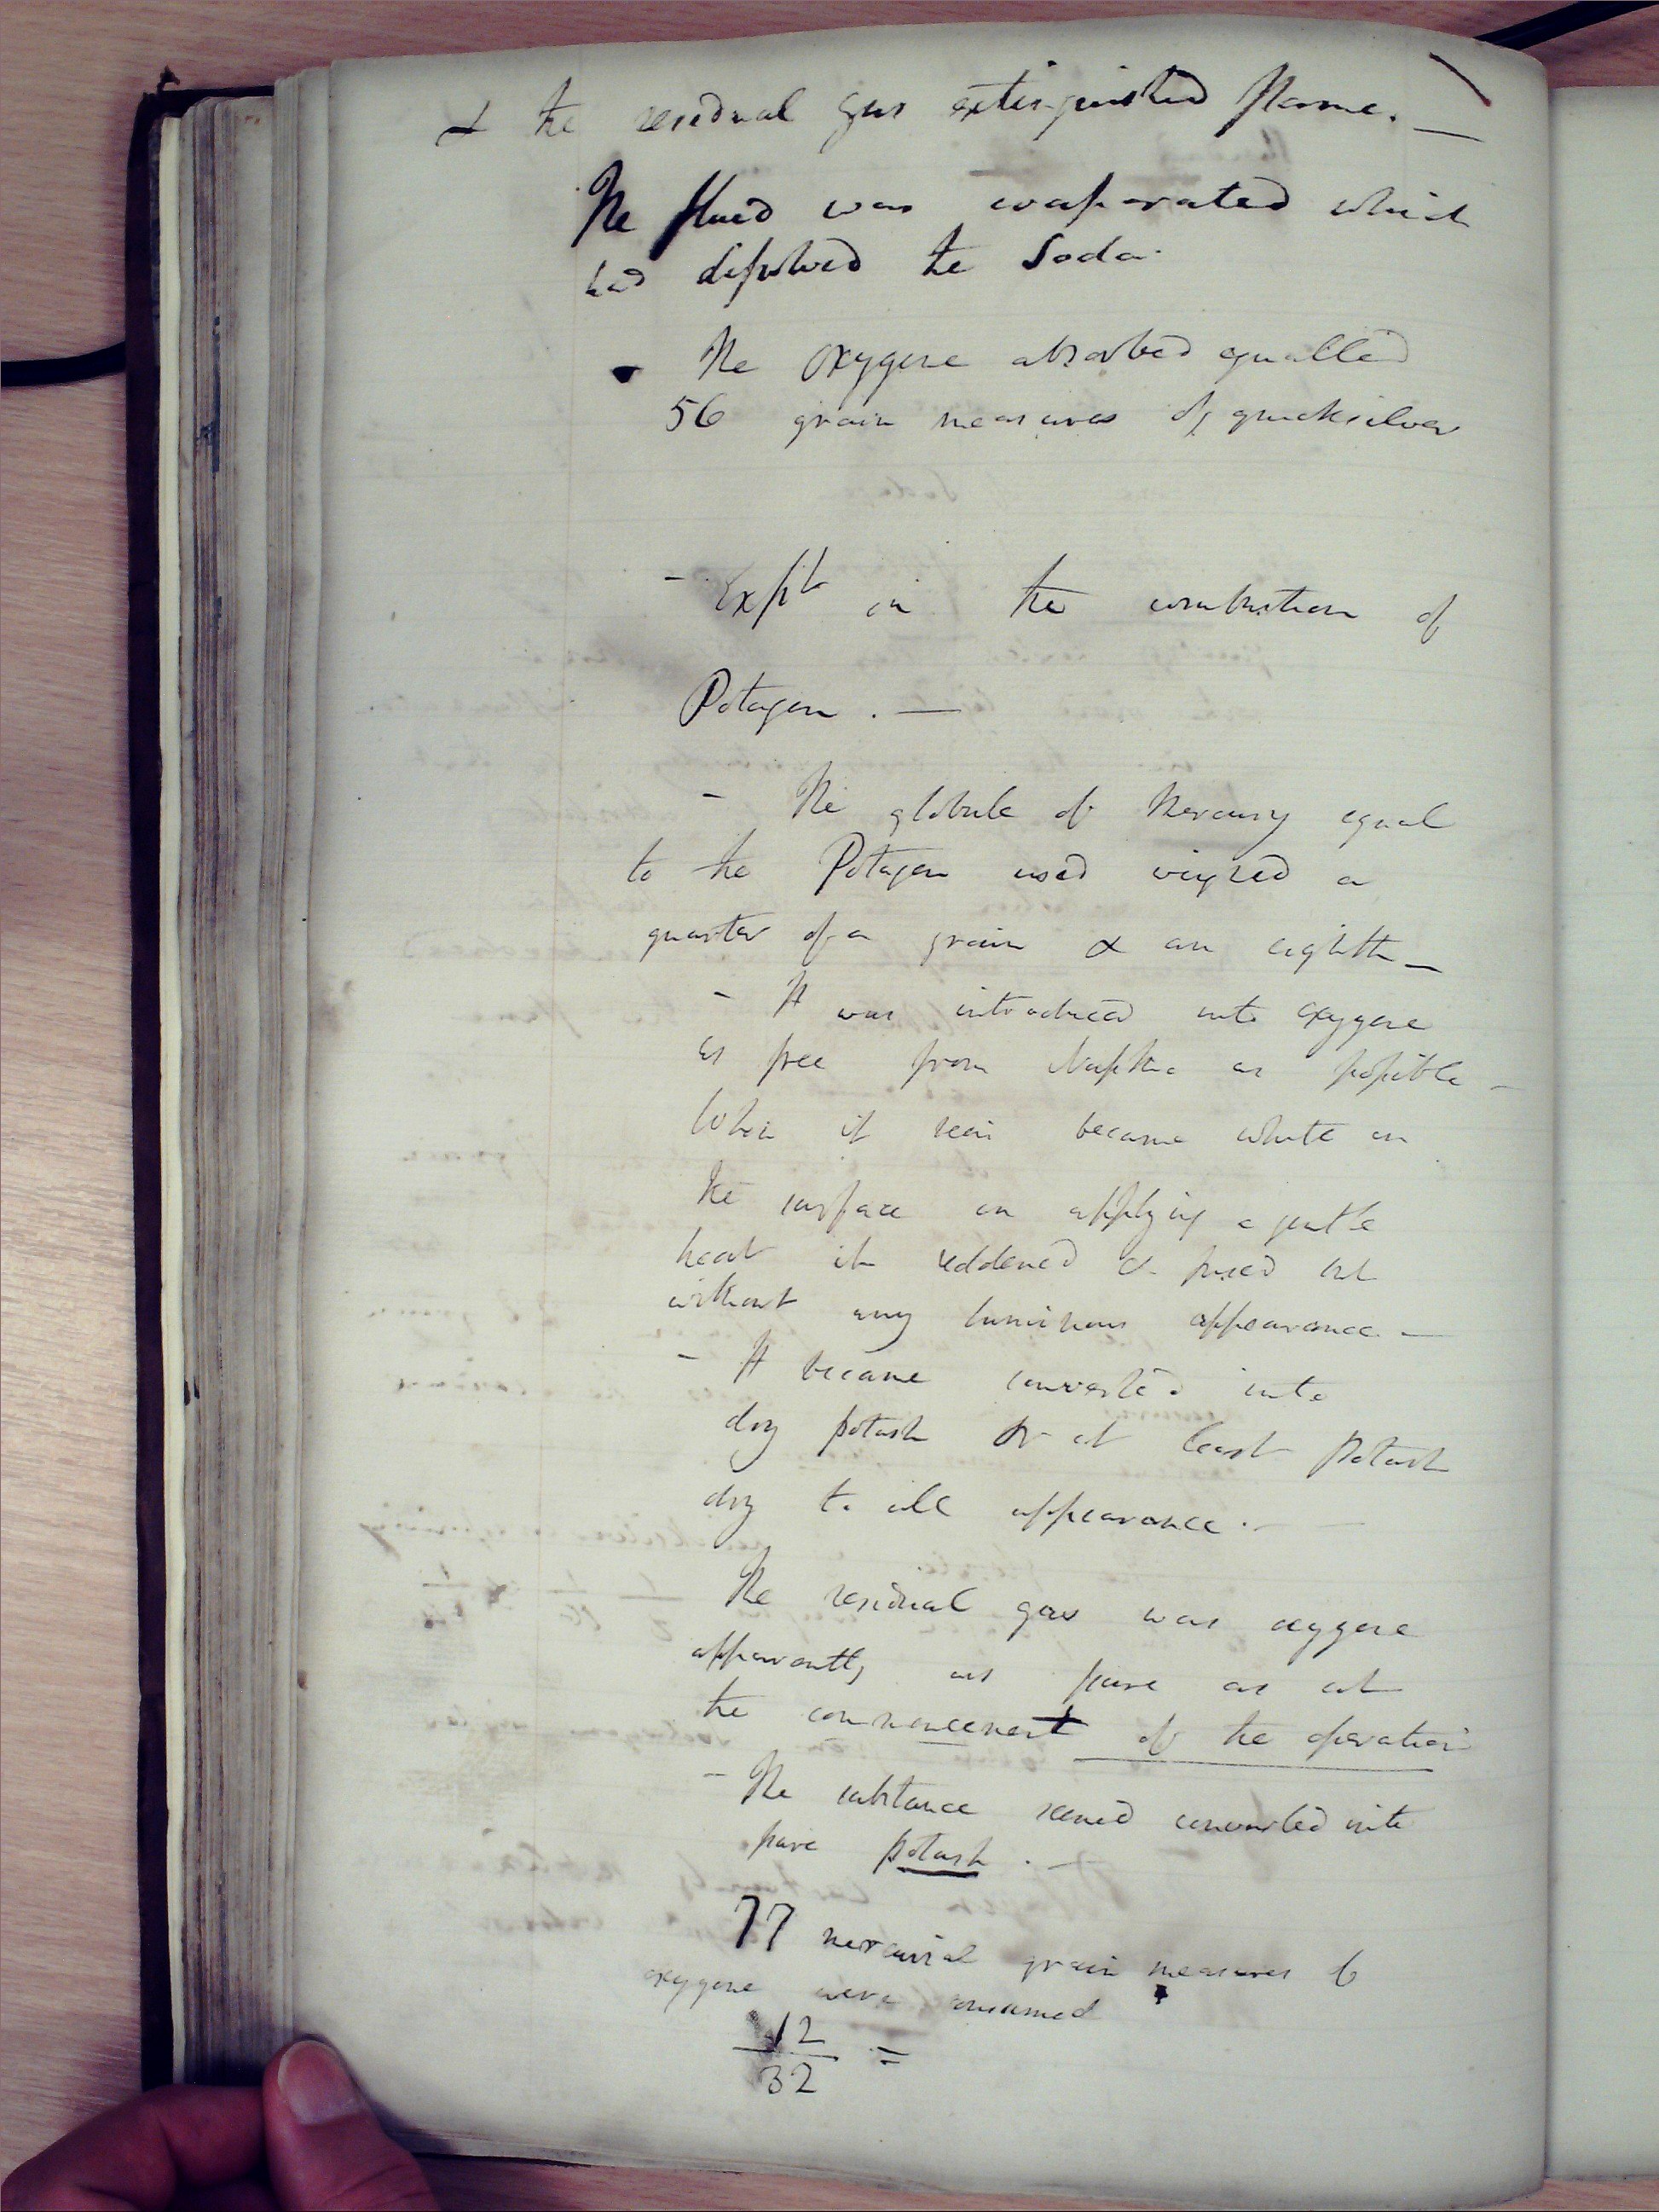 & the residual gas extinguished flame. —
The fluid was evaporated which
had dissolved the Soda.
- The oxygene absorbed equalled
56 grain measures of quicksilver
- Expt on the combustion of
Potagen. —
- The globule of Mercury equal
to the Potagen used weighed a
quarter of a grain & an eighth —
- It was introduced into oxygene
as free from Naptha as possible —
When it was became white on
the surface on applying a gentle
heat it reddened & fused but
without any luminous appearance. —
- It became converted into
dry potash or at least Potash
dry to all appearance. —
The residual gas was oxygene
apparently as pure as at
the commencement of the operation
- The substance seemed converted into
pure potash. —
77 mercurial grain measures of
oxygene were consumed
12
32 =